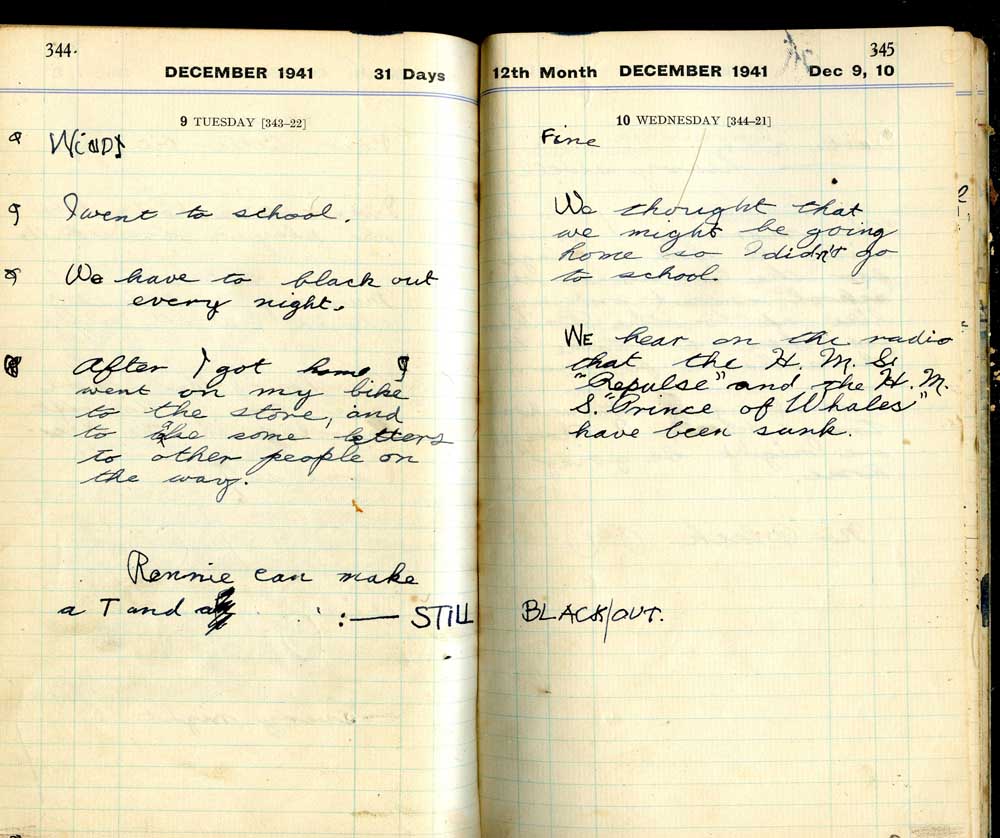 344.
DECEMBER 1941 31 Days
9 TUESDAY [343–22]
WiNDY
I went to school.
We have to black out
every night.
After I got home I
went on my bike
to the store, and
to take some letters
to other people on
the way.
Rennie can make
a T and a
:— STILL
345
12th Month DECEMBER 1941 Dec 9, 10
10 WEDNESDAY [344–21]
Fine
We thought that
we might be going
home so I didn't go
to school.
WE hear on the radio
that the H. M. S.
"Repulse" and the H. M.
S. "Prince of Whales"
have been sunk.
BLACK/OUT.